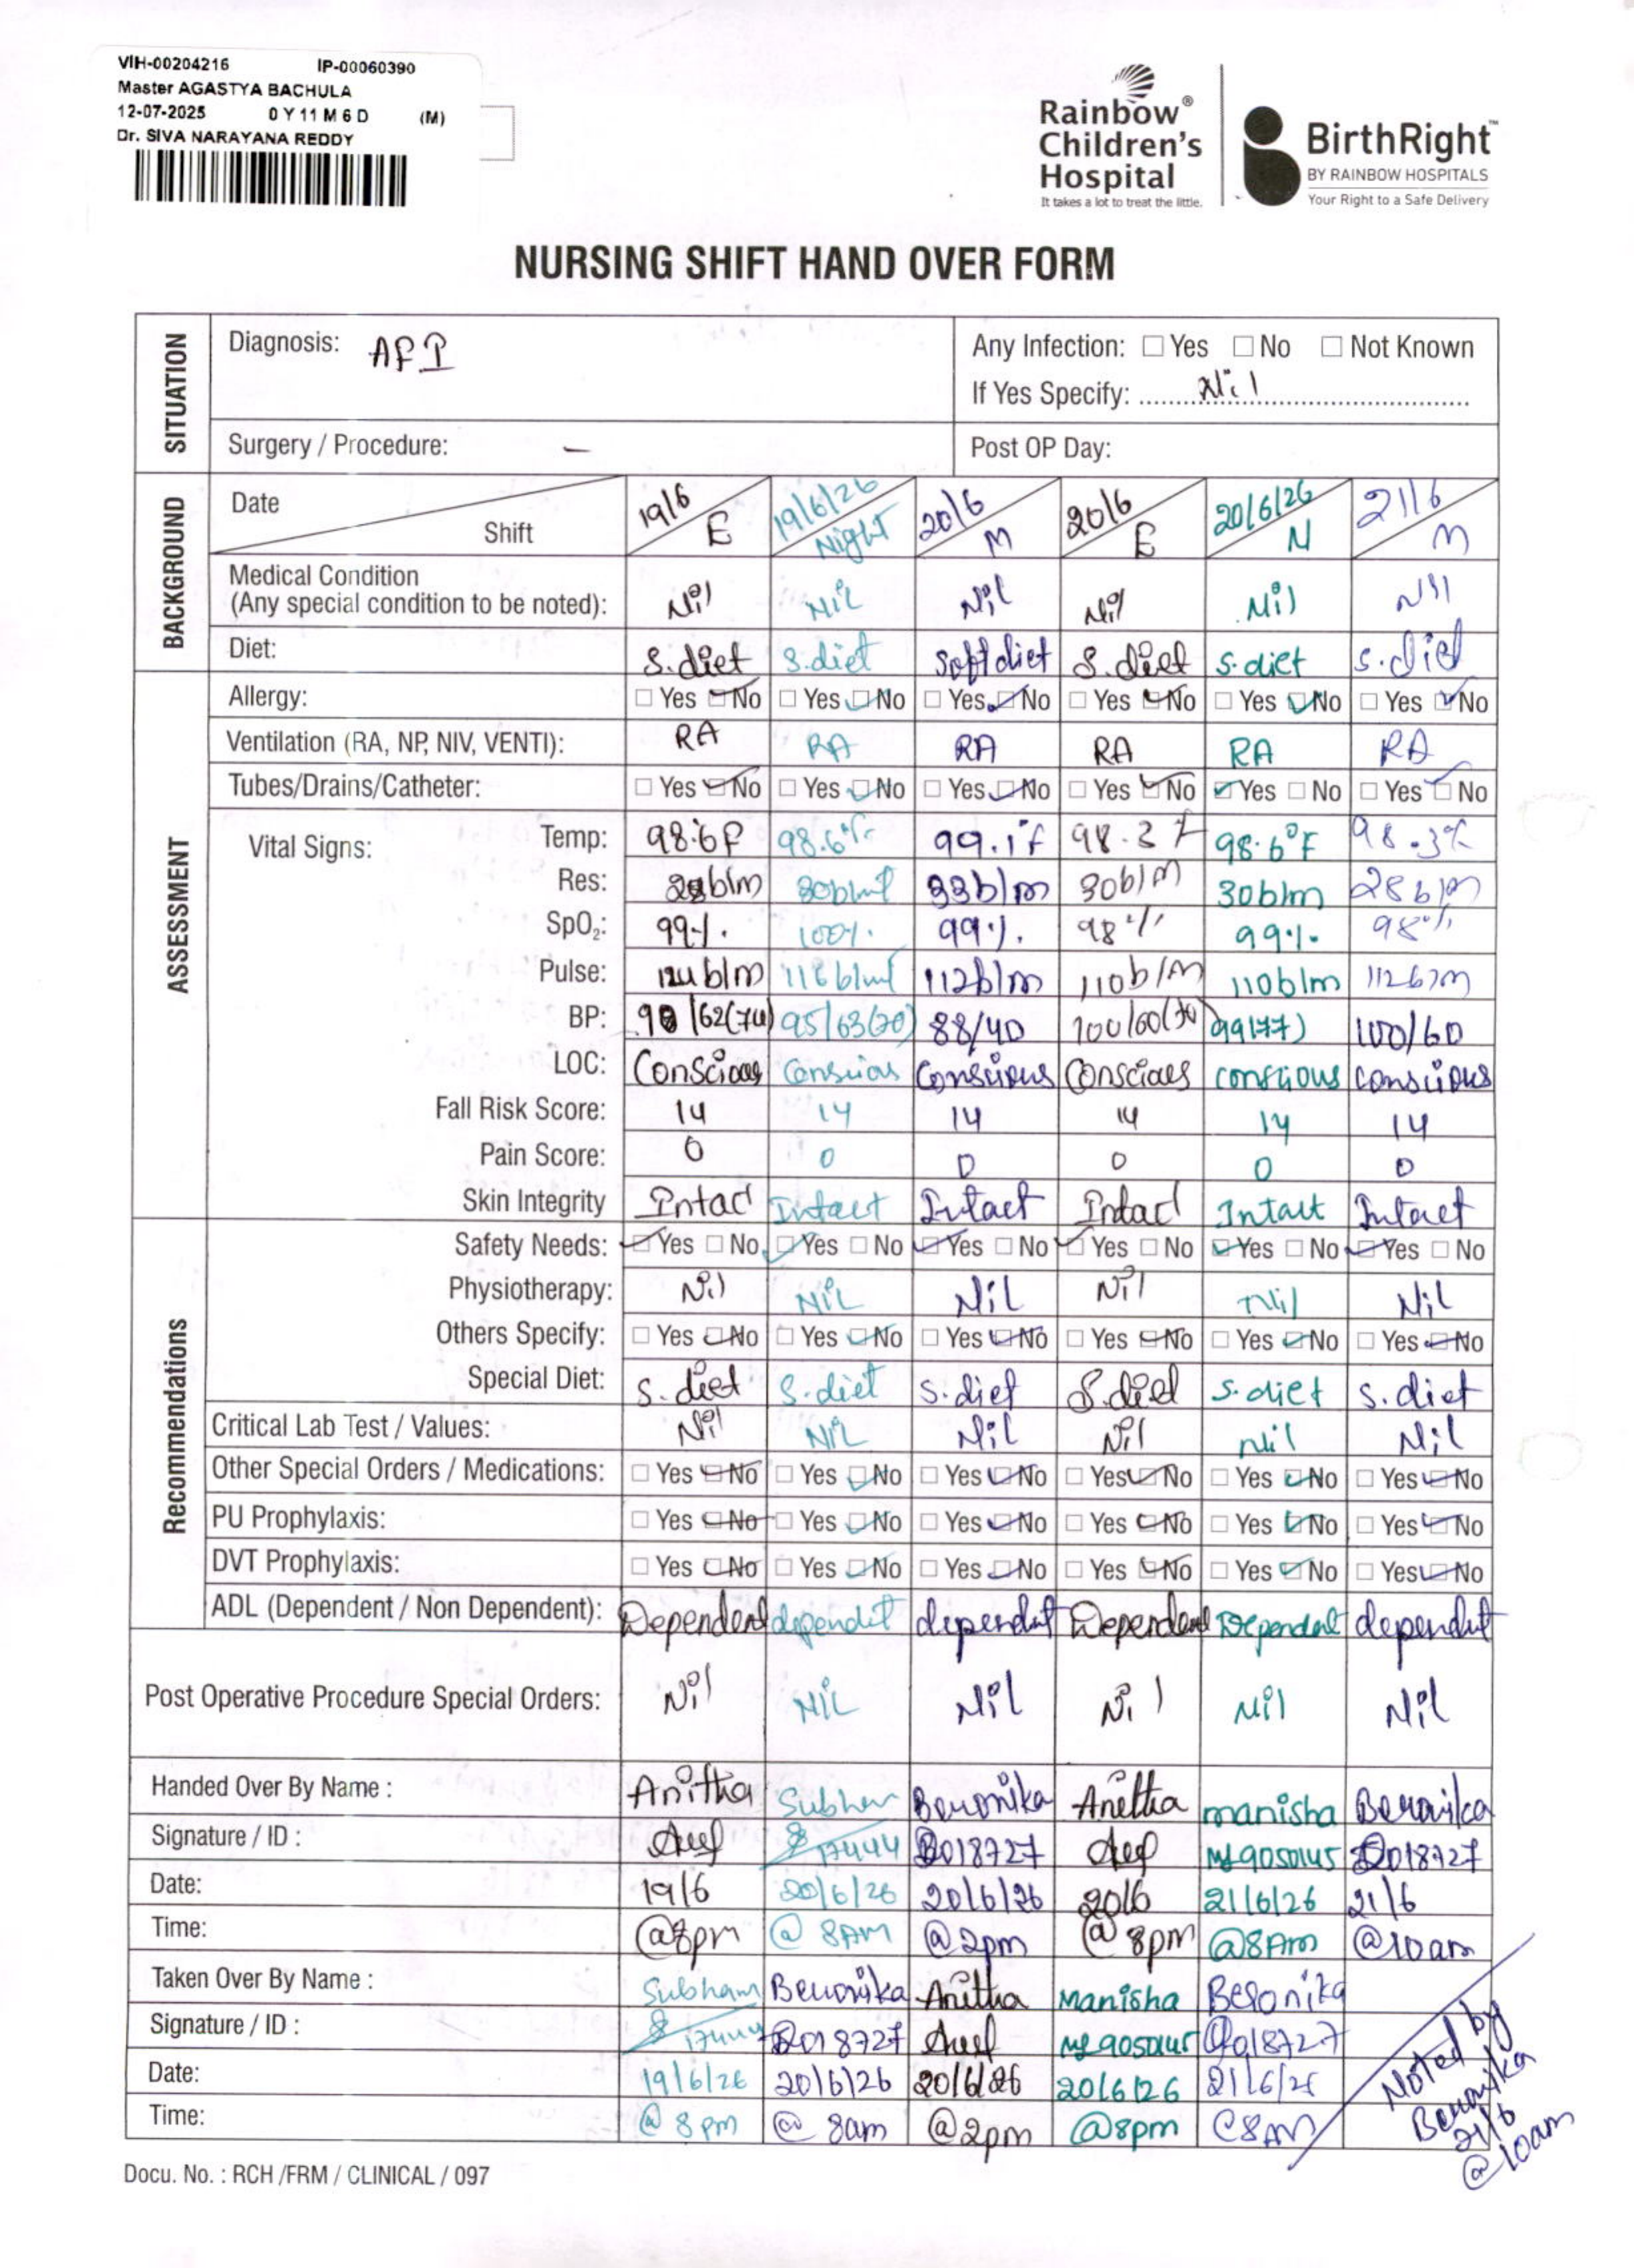 VIH-00204216 IP-00060390
Master AGASTYA BACHULA
12-07-2025 0 Y 11 M 6 D (M)
Dr. SIVA NARAYANA REDDY
Rainbow®
Children's
Hospital
It takes a lot to treat the little.
BirthRight™
BY RAINBOW HOSPITALS
Your Right to a Safe Delivery
NURSING SHIFT HAND OVER FORM
SITUATION
Diagnosis: AFI
Any Infection: ☐ Yes ☐ No ☐ Not Known
If Yes Specify: Nil
Surgery / Procedure: –
Post OP Day:
BACKGROUND
Date 19/6 19/6/26 20/6 20/6 20/6/26 21/6
Shift E Night M E N M
Medical Condition
(Any special condition to be noted): Nil NIL Nil Nil Nil Nil
Diet: S.diet S.diet Soft diet S.diet S.diet S.diet
ASSESSMENT
Allergy: ☐ Yes ☑ No ☐ Yes ☑ No ☐ Yes ☑ No ☐ Yes ☑ No ☐ Yes ☑ No ☐ Yes ☑ No
Ventilation (RA, NP, NIV, VENTI): RA RA RA RA RA RA
Tubes/Drains/Catheter: ☐ Yes ☑ No ☐ Yes ☑ No ☐ Yes ☑ No ☐ Yes ☑ No ☑ Yes ☐ No ☐ Yes ☑ No
Vital Signs:
Temp: 98.6F 98.6°F 99.1°F 98.3 F 98.6°F 98.3°F
Res: 28b/m 30b/mt 33b/m 30b/m 30b/m 28b/m
SpO₂: 99% 100% 99% 98% 99% 98%
Pulse: 124b/m 116b/mt 112b/m 110b/m 110b/m 112b/m
BP: 90/62(74) 95/63(70) 88/40 100/60(70) 99(77) 100/60
LOC: Conscious Conscious Conscious Conscious conscious conscious
Fall Risk Score: 14 14 14 14 14 14
Pain Score: 0 0 0 0 0 0
Skin Integrity Intact Intact Intact Intact Intact Intact
Recommendations
Safety Needs: ☑ Yes ☐ No ☑ Yes ☐ No ☑ Yes ☐ No ☑ Yes ☐ No ☑ Yes ☐ No ☑ Yes ☐ No
Physiotherapy: Nil NIL Nil Nil Nil Nil
Others Specify: ☐ Yes ☑ No ☐ Yes ☑ No ☐ Yes ☑ No ☐ Yes ☑ No ☐ Yes ☑ No ☐ Yes ☑ No
Special Diet: S.diet S.diet S.diet S.diet S.diet S.diet
Critical Lab Test / Values: Nil NIL Nil Nil Nil Nil
Other Special Orders / Medications: ☐ Yes ☑ No ☐ Yes ☑ No ☐ Yes ☑ No ☐ Yes ☑ No ☐ Yes ☑ No ☐ Yes ☑ No
PU Prophylaxis: ☐ Yes ☑ No ☐ Yes ☑ No ☐ Yes ☑ No ☐ Yes ☑ No ☐ Yes ☑ No ☐ Yes ☑ No
DVT Prophylaxis: ☐ Yes ☑ No ☐ Yes ☑ No ☐ Yes ☑ No ☐ Yes ☑ No ☐ Yes ☑ No ☐ Yes ☑ No
ADL (Dependent / Non Dependent): Dependent dependent dependent Dependent Dependent dependent
Post Operative Procedure Special Orders: Nil NIL Nil Nil Nil Nil
Handed Over By Name : Anitha Subham Beronika Anitha manisha Beronika
Signature / ID : 17444 018727 018727
Date: 19/6 20/6/26 20/6/26 20/6 21/6/26 21/6
Time: @8pm @ 8AM @2pm @ 8pm @8Am @10am
Taken Over By Name : Subham Beronika Anitha Manisha Beronika
Signature / ID : 17444 018727 018727
Date: 19/6/26 20/6/26 20/6/26 20/6/26 21/6/26
Time: @ 8pm @ 8am @2pm @8pm @8AM
Noted by
Beronika
21/6
@10am
Docu. No. : RCH /FRM / CLINICAL / 097